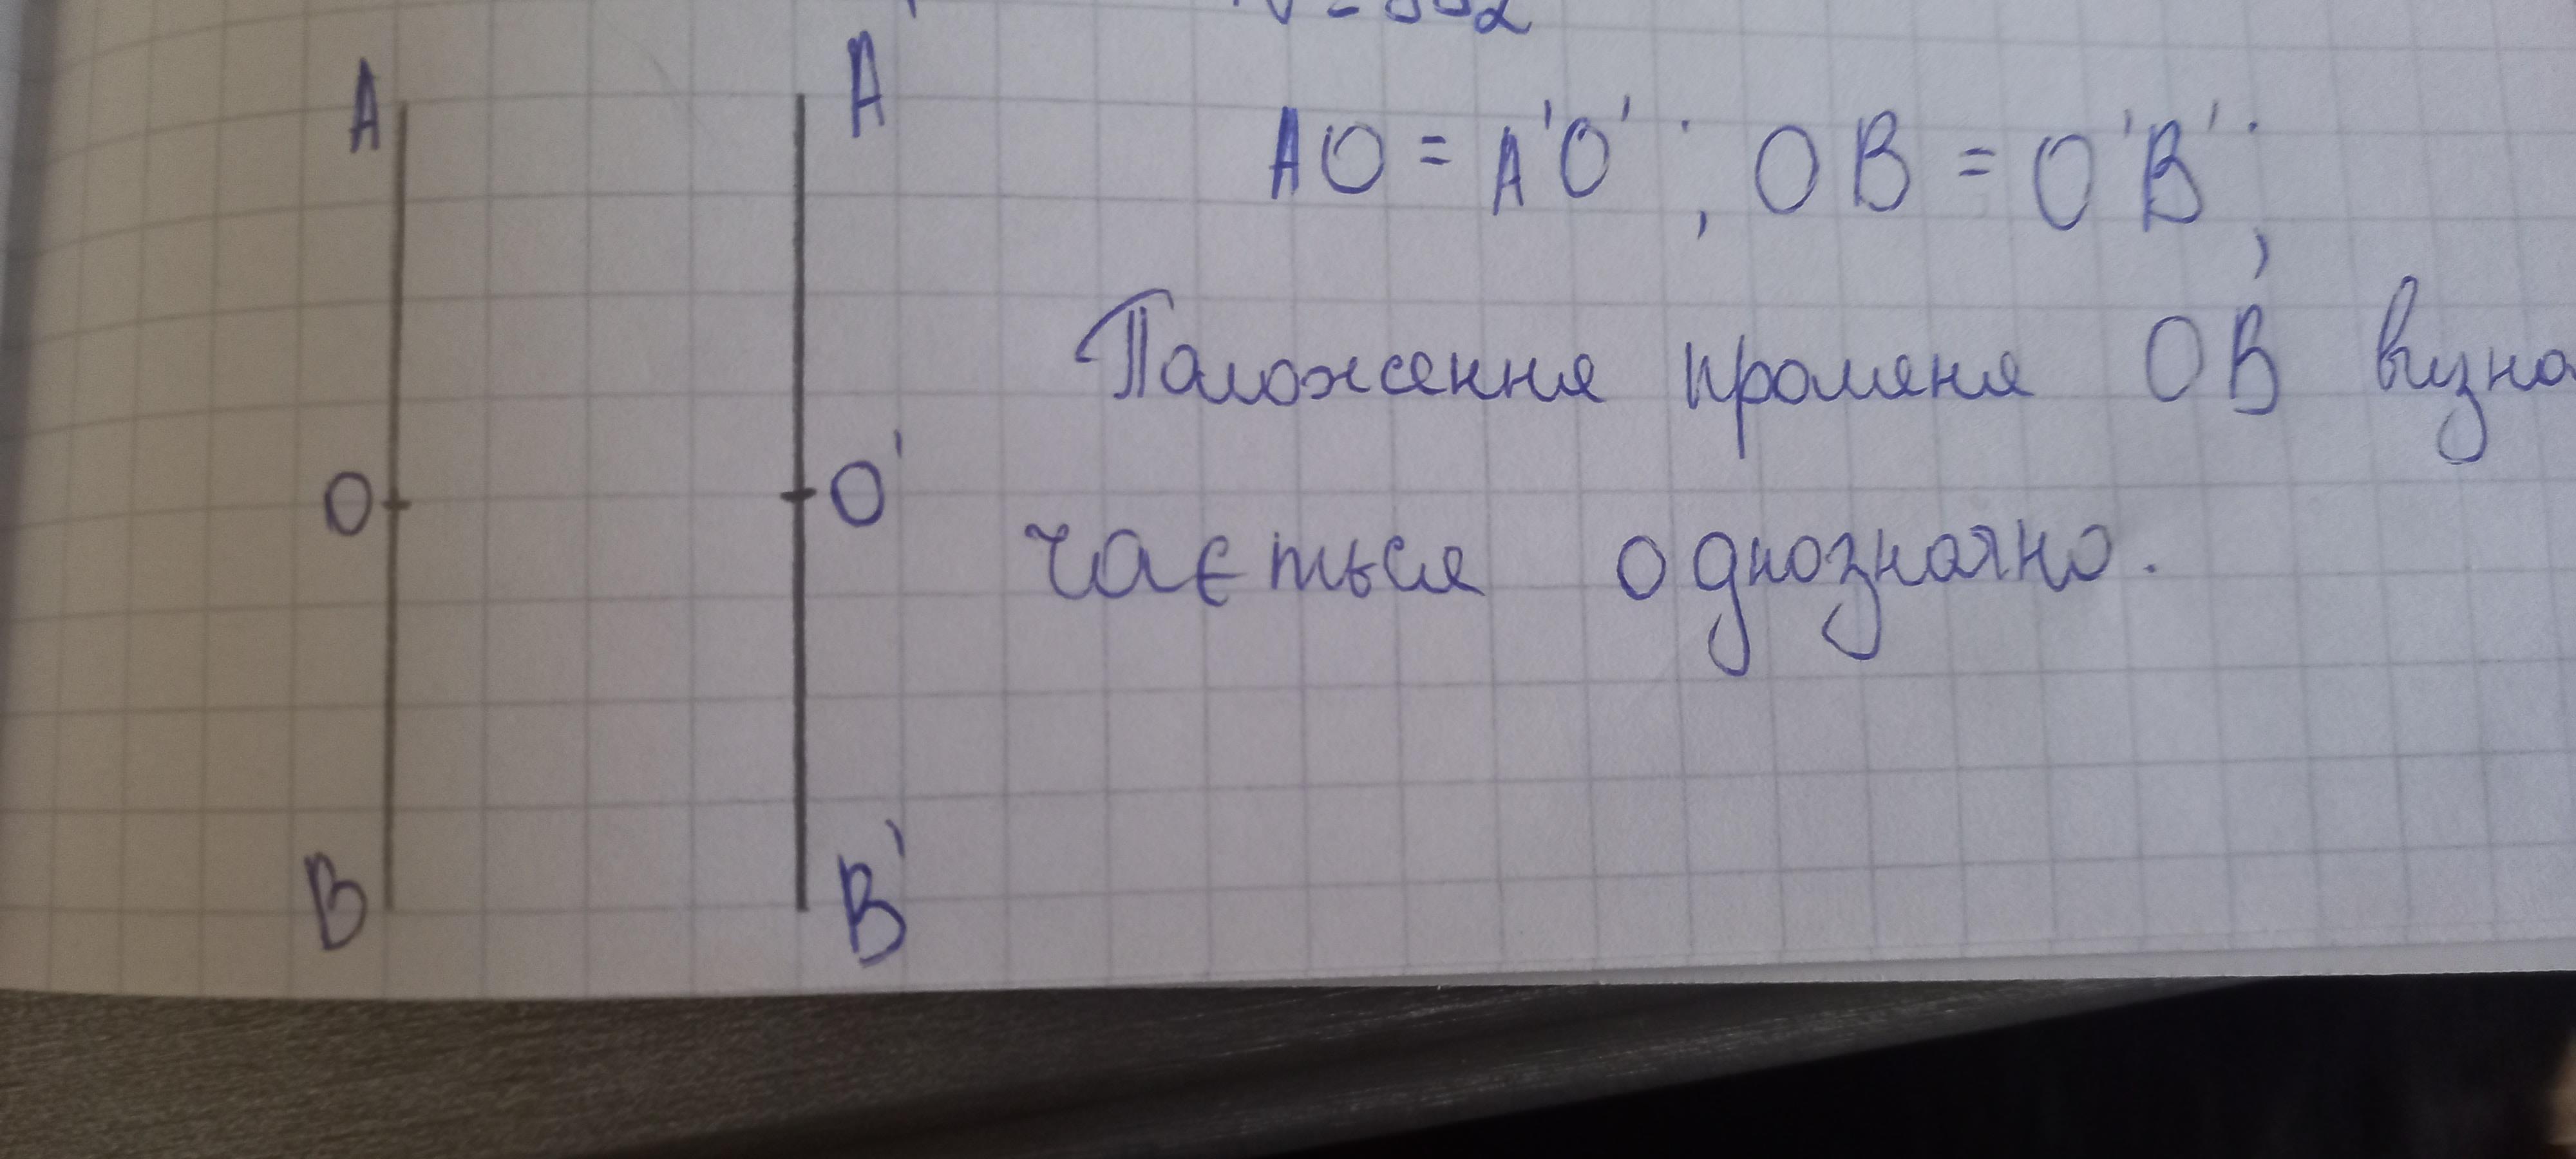 A A AO = A'O'; OB = O'B';
Положення променя OB визна
O O' чається однозначно.
B B'